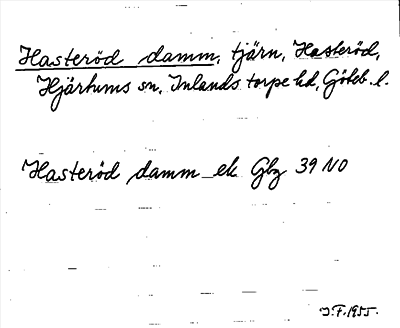 Hasteröd damm, tjärn, Hasteröd,
Hjärtums sn, Inlands torpe hd, Göteb. l.
Hasteröd damm ek Gbg 39 NO
J.F. 1955.